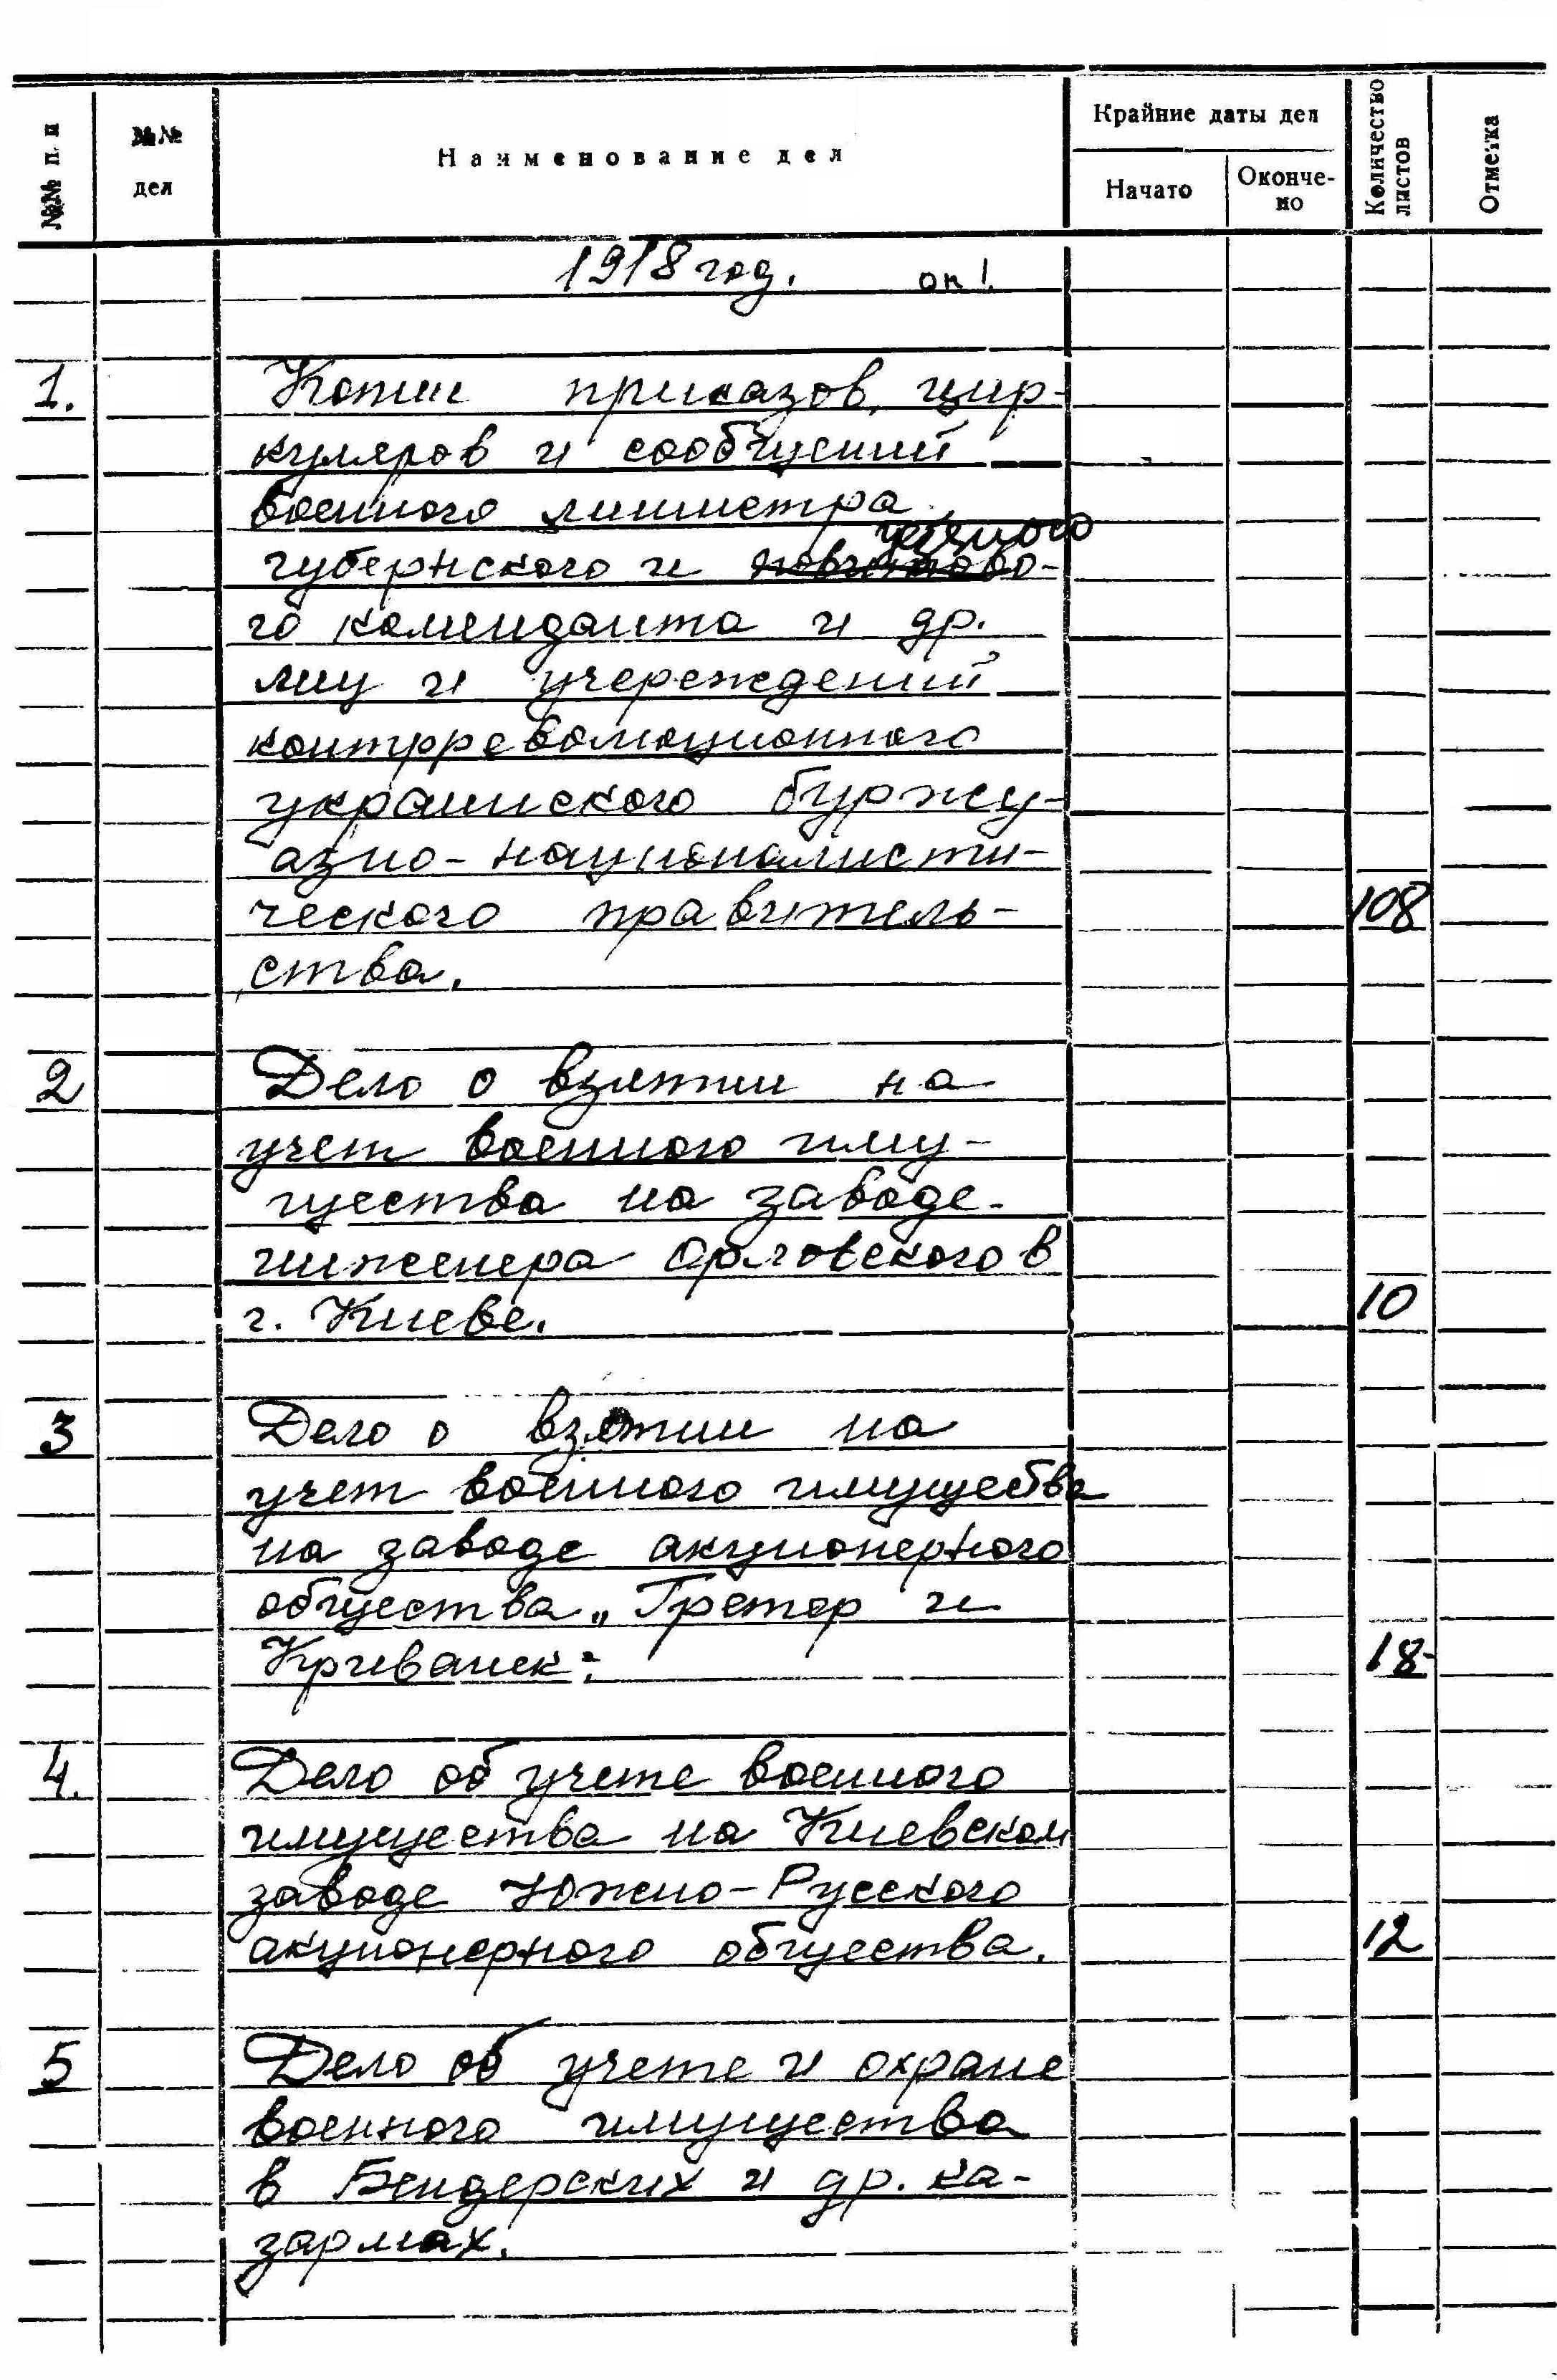 №№ п. п
№№ дел
Наименование дел
Крайние даты дел
Начато
Окончено
Количество листов
Отметка
1918 год. оп 1.
1. Копии приказов, цир-
куляров и сообщений
военного министра,
уездного
губернского и повитово-
го коменданта и др.
лиц и учереждений
контрреволюционного
украинского буржу-
азно-националисти-
ческого правитель- 108
ства.
2 Дело о взятии на
учет военного иму-
щества на заводе
инженера Орловского в
г. Киеве. 10
3 Дело о взятии на
учет военного имущества
на заводе акционерного
общества „Гретер и
Криванек". 18
4. Дело об учете военного
имущества на Киевском
заводе Южно-Русского
акционерного общества. 12
5 Дело об учете и охране
военного имущества
в Бендерских и др. ка-
зармах.